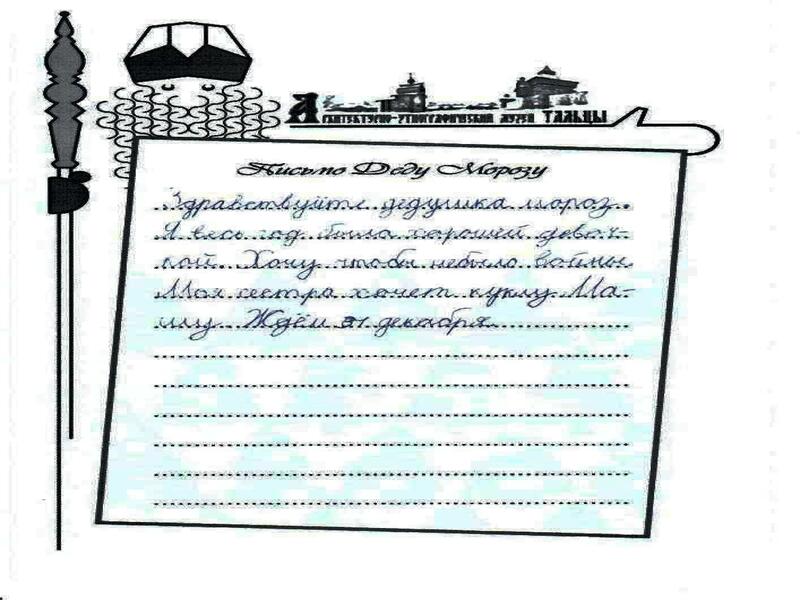 Архитектурно-этнографический музей ТАЛЬЦЫ
Письмо Деду Морозу
Здравствуйте дедушка мороз.
Я весь год была хорошей девоч-
кой. Хочу чтобы небыло войны.
Моя сестра хочет куклу Ма-
шу. Ждём 31 декабря